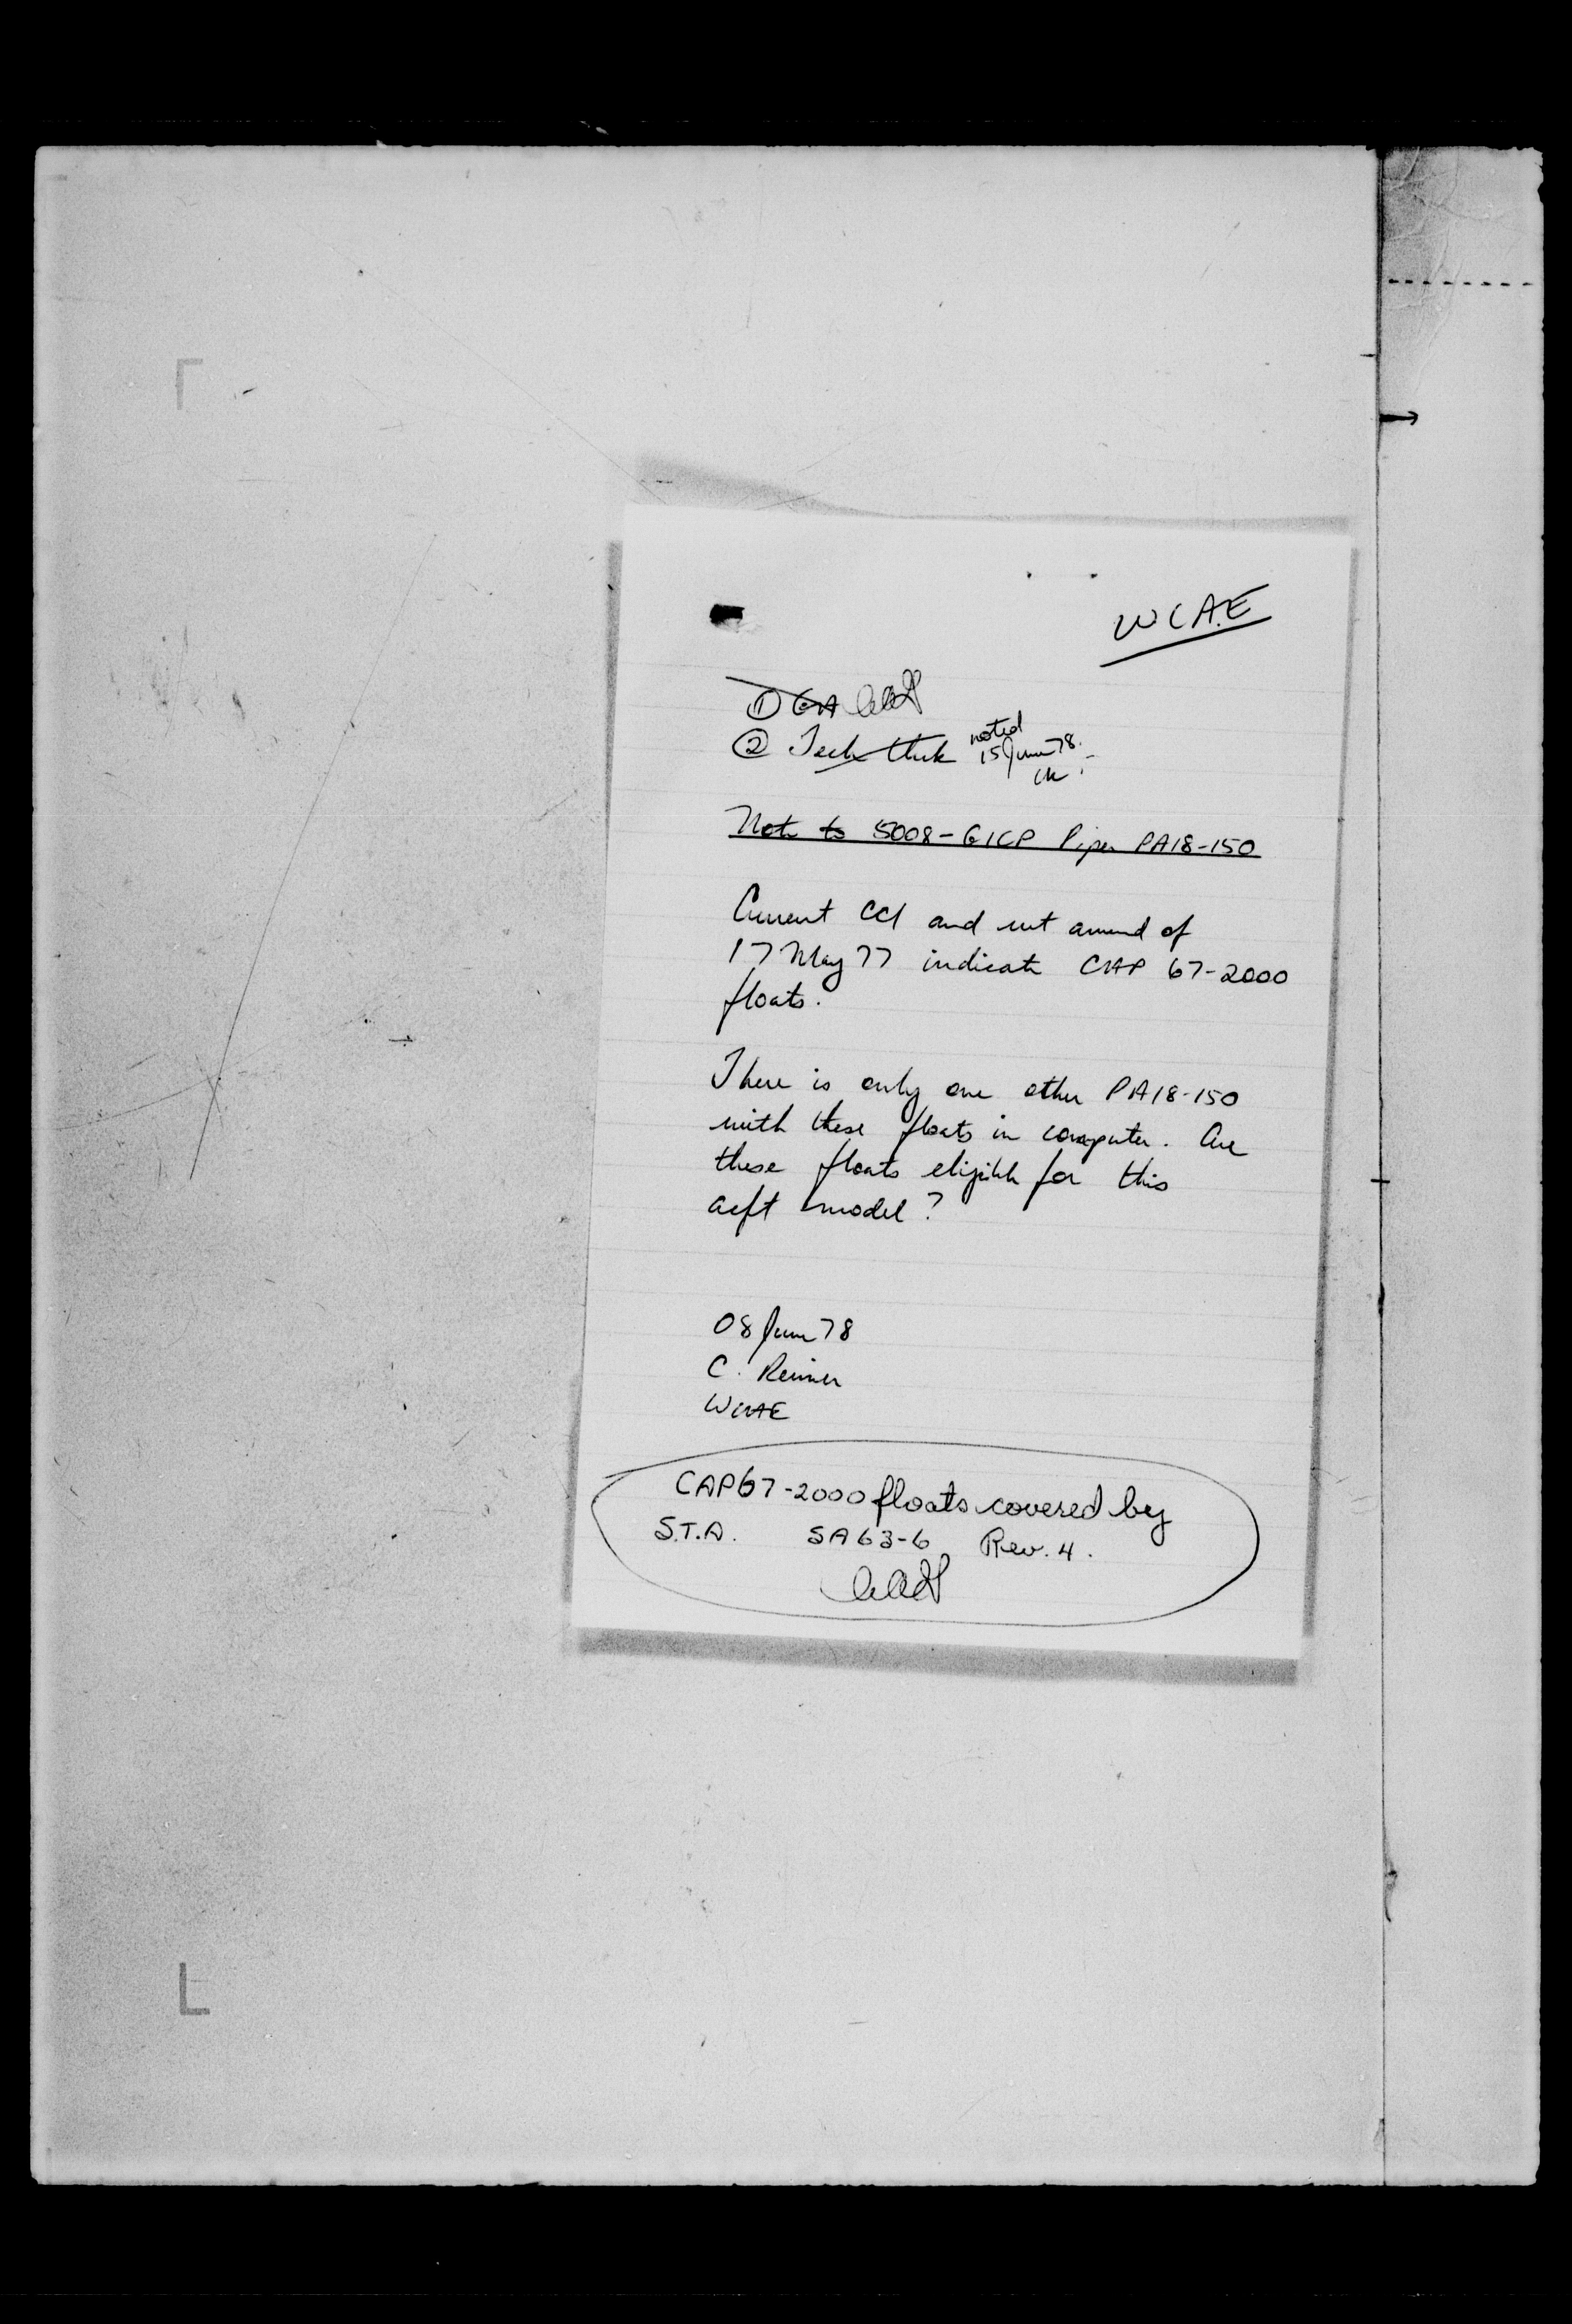 WCAE
① GA
② Tech Clerk noted
15 June 78.
Note to 5008-GICP Piper PA18-150
Current CCI and wt amend of
17 May 77 indicate CAP 67-2000
floats.
There is only one other PA18-150
with these floats in computer. Are
these floats eligible for this
acft model?
08 June 78
C. Reimer
WCAE
CAP67-2000 floats covered by
S.T.A. SA63-6 Rev. 4.